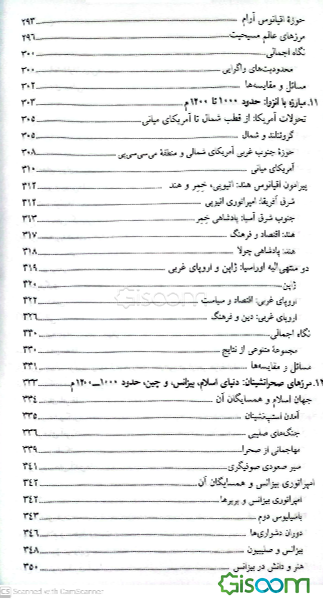 حوزهٔ اقیانوسی آرام ۲۹۳
مرزهای عالم مسیحیت ۲۹۶
نگاه اجمالی ۳۰۰
محدودیت‌های واگرایی ۳۰۰
مسائل و مقایسه‌ها ۳۰۲
۱۱. مبارزه با انزوا: حدود ۱۰۰۰ تا ۱۲۰۰م ۳۰۳
تحولات آمریکا: از قطب شمال تا آمریکای میانی ۳۰۵
گروئنلند و شمال ۳۰۵
حوزهٔ جنوب غربی آمریکای شمالی و منطقهٔ می‌سی‌سی‌پی ۳۰۸
آمریکای میانی ۳۱۰
پیرامون اقیانوس هند: اتیوپی، خِمِر و هند ۳۱۲
شرق آفریقا: امپراتوری اتیوپی ۳۱۲
جنوب شرق آسیا: پادشاهی خِمِر ۳۱۳
هند: اقتصاد و فرهنگ ۳۱۷
هند: پادشاهی چولا ۳۱۸
دو منتهی‌الیه اوراسیا: ژاپن و اروپای غربی ۳۱۹
ژاپن ۳۲۰
اروپای غربی: اقتصاد و سیاست ۳۲۲
اروپای غربی: دین و فرهنگ ۳۲۶
نگاه اجمالی ۳۳۰
مجموعهٔ متنوعی از نتایج ۳۳۰
مسائل و مقایسه‌ها ۳۳۱
۱۲. مرزهای صحرانشینان: دنیای اسلام، بیزانس، و چین، حدود ۱۰۰۰–۱۲۰۰م ۳۳۳
جهان اسلام و همسایگان آن ۳۳۴
آمدن استپ‌نشینان ۳۳۵
جنگ‌های صلیبی ۳۳۶
مهاجمانی از صحرا ۳۳۹
سیر صعودی صوفیگری ۳۴۱
امپراتوری بیزانس و همسایگان آن ۳۴۲
امپراتوری بیزانس و بربرها ۳۴۲
باسیلیوس دوم ۳۴۳
دوران دشواری‌ها ۳۴۶
بیزانس و صلیبیون ۳۴۸
هنر و دانش در بیزانس ۳۵۰
Gisoom
Gisoom
CS Scanned with CamScanner